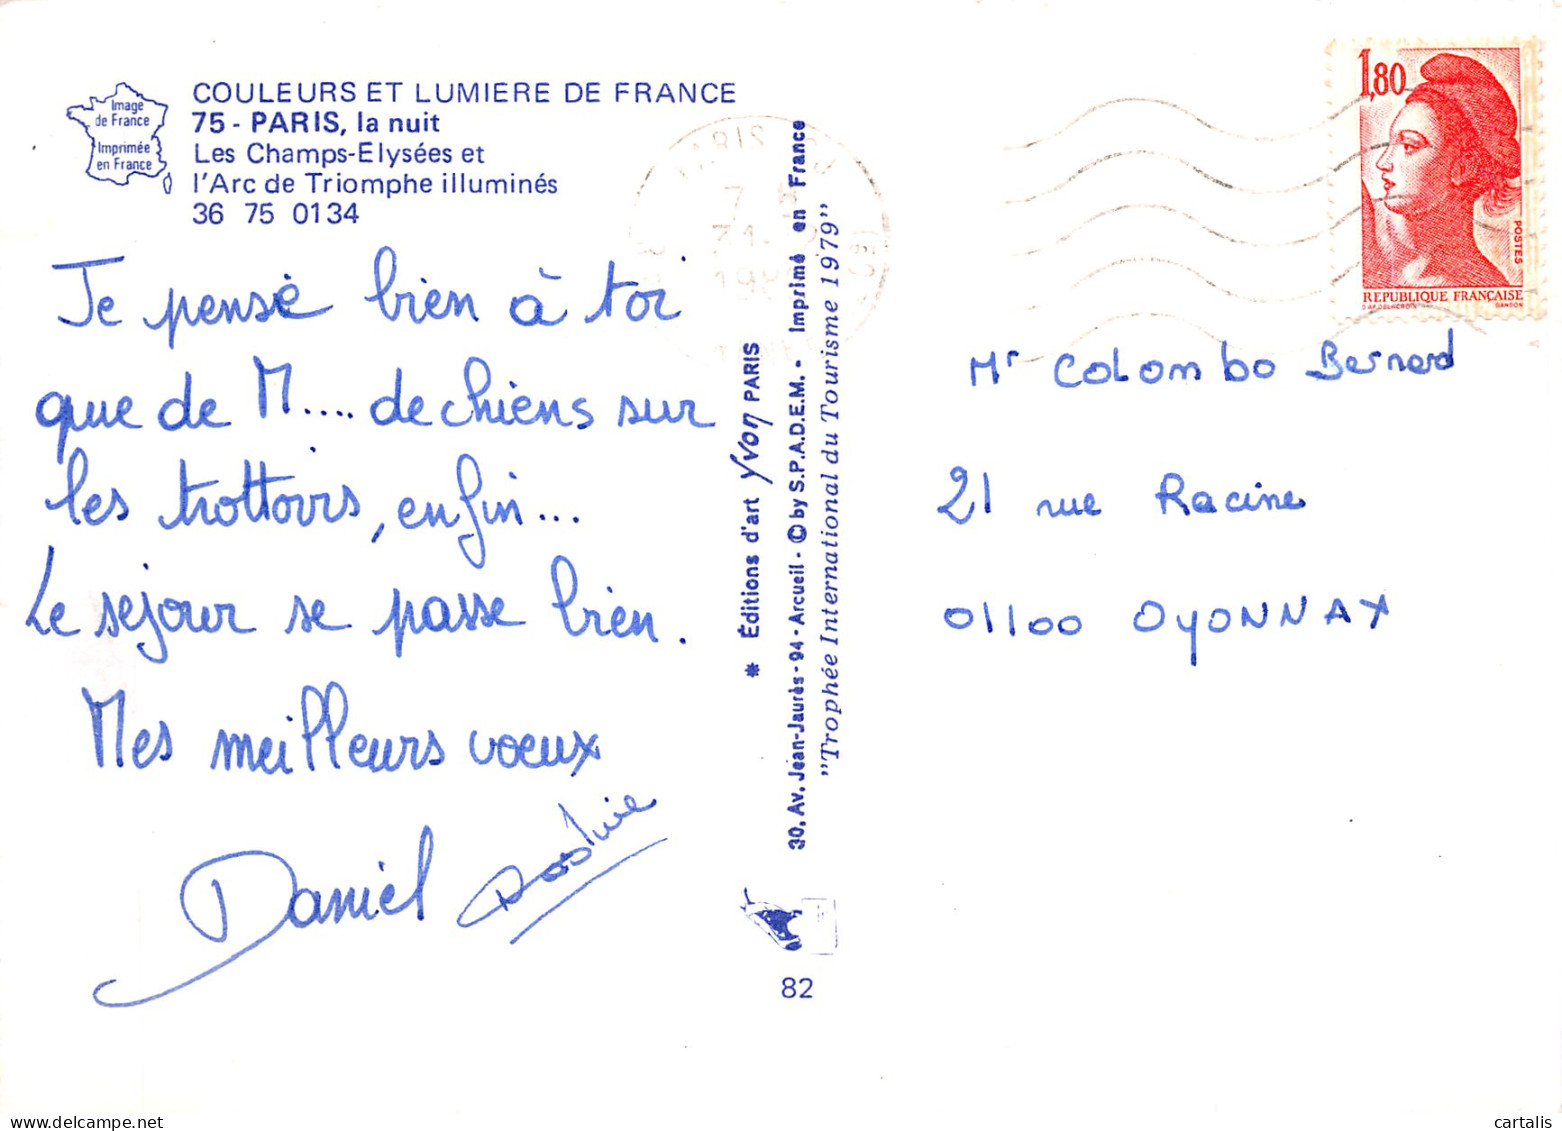 Image
de France
Imprimée
en France
COULEURS ET LUMIERE DE FRANCE
75 - PARIS, la nuit
Les Champs-Elysées et
l'Arc de Triomphe illuminés
36 75 0134
Je pense bien à toi
que de M.... de chiens sur
les trottoirs, enfin...
Le séjour se passe bien.
Mes meilleurs voeux
Daniel
* Éditions d'art Yvon PARIS
30, Av. Jean-Jaurès - 94 - Arcueil - © by S.P.A.D.E.M. - Imprimé en France
"Trophée International du Tourisme 1979"
82
PARIS
1,80
POSTES
REPUBLIQUE FRANÇAISE
GANDON
Mr Colombo Bernard
21 rue Racine
01100 OyONNAX
cartalis